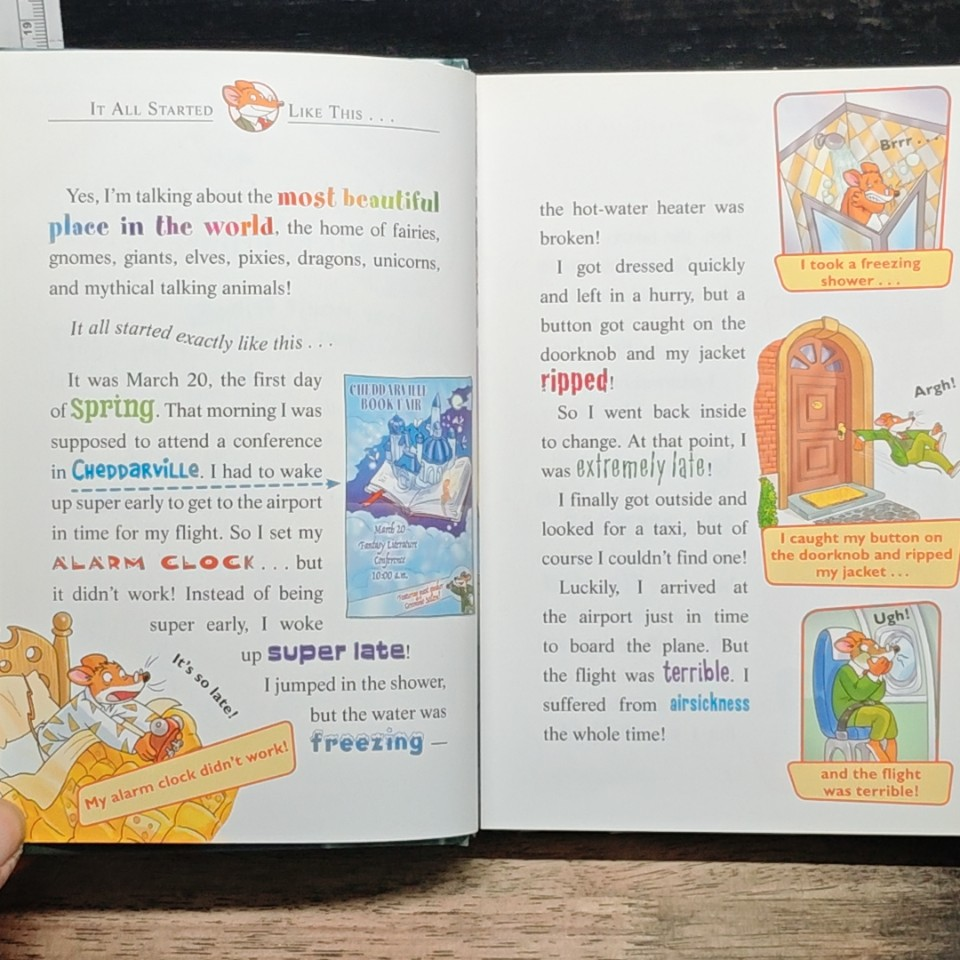 19
IT ALL STARTED LIKE THIS . . .
Yes, I'm talking about the most beautiful
place in the world, the home of fairies,
gnomes, giants, elves, pixies, dragons, unicorns,
and mythical talking animals!
It all started exactly like this . . .
It was March 20, the first day
of Spring. That morning I was
supposed to attend a conference
in CHEDDARVILLE. I had to wake
up super early to get to the airport
in time for my flight. So I set my
ALARM CLOCK . . . but
it didn't work! Instead of being
super early, I woke
up super late!
I jumped in the shower,
but the water was
freezing —
It's so late!
My alarm clock didn't work!
CHEDDARVILLE
BOOK FAIR
March 20
Fantasy Literature
Conference
10:00 a.m.
the hot-water heater was
broken!
I got dressed quickly
and left in a hurry, but a
button got caught on the
doorknob and my jacket
ripped!
So I went back inside
to change. At that point, I
was extremely late!
I finally got outside and
looked for a taxi, but of
course I couldn't find one!
Luckily, I arrived at
the airport just in time
to board the plane. But
the flight was terrible. I
suffered from airsickness
the whole time!
Brrr . . .
I took a freezing
shower . . .
Argh!
I caught my button on
the doorknob and ripped
my jacket . . .
Ugh!
and the flight
was terrible!